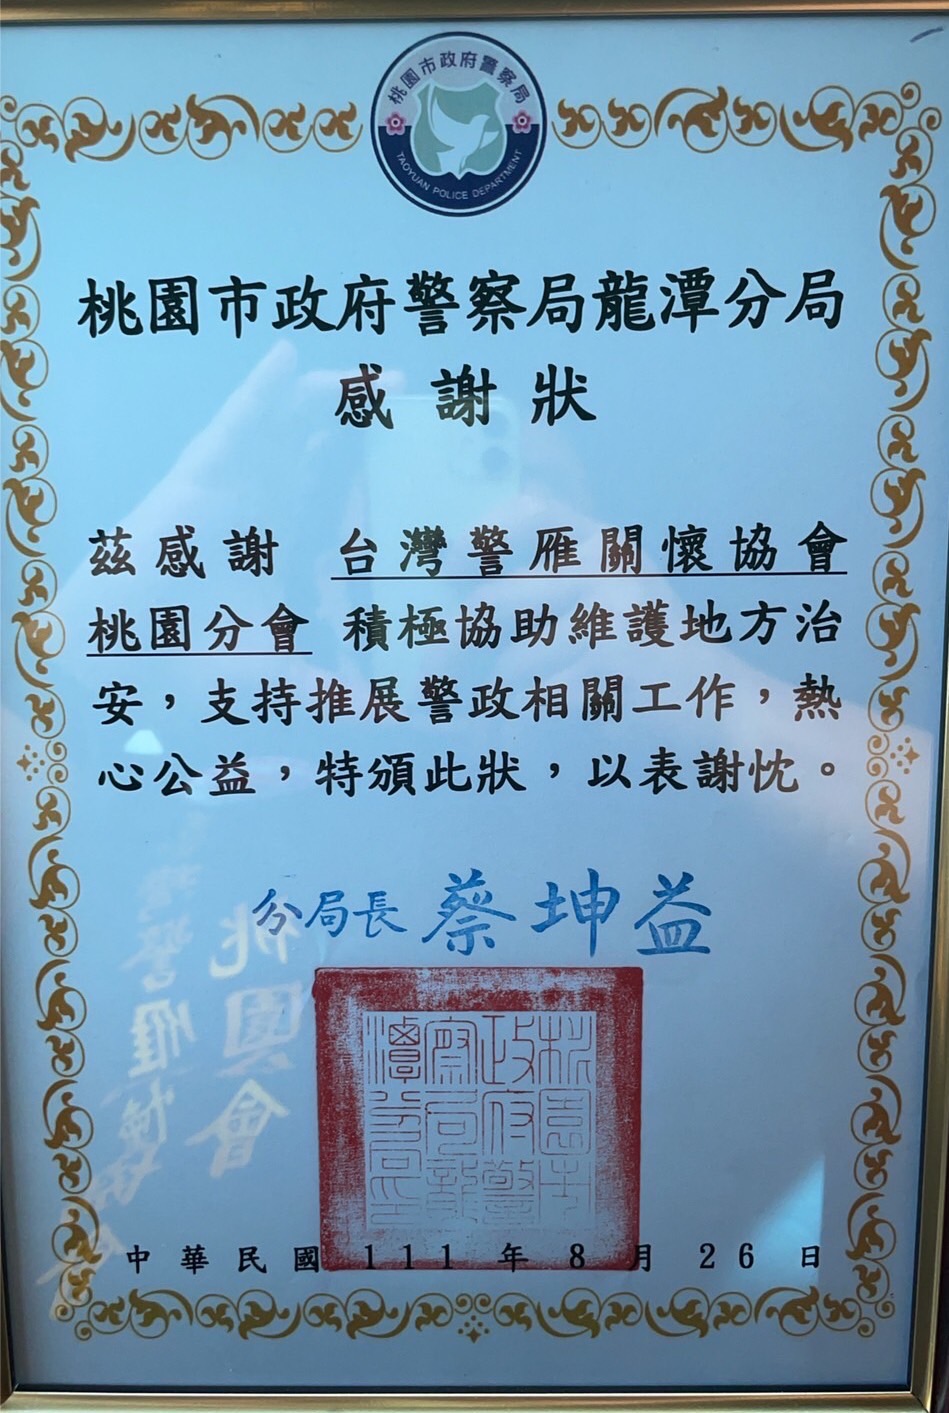 桃園市政府警察局
TAOYUAN POLICE DEPARTMENT
桃園市政府警察局龍潭分局
感謝狀
茲感謝 台灣警雁關懷協會
桃園分會 積極協助維護地方治
安，支持推展警政相關工作，熱
心公益，特頒此狀，以表謝忱。
分局長 蔡坤益
桃園市
政府警
察局龍
潭分局印
中華民國111年8月26日